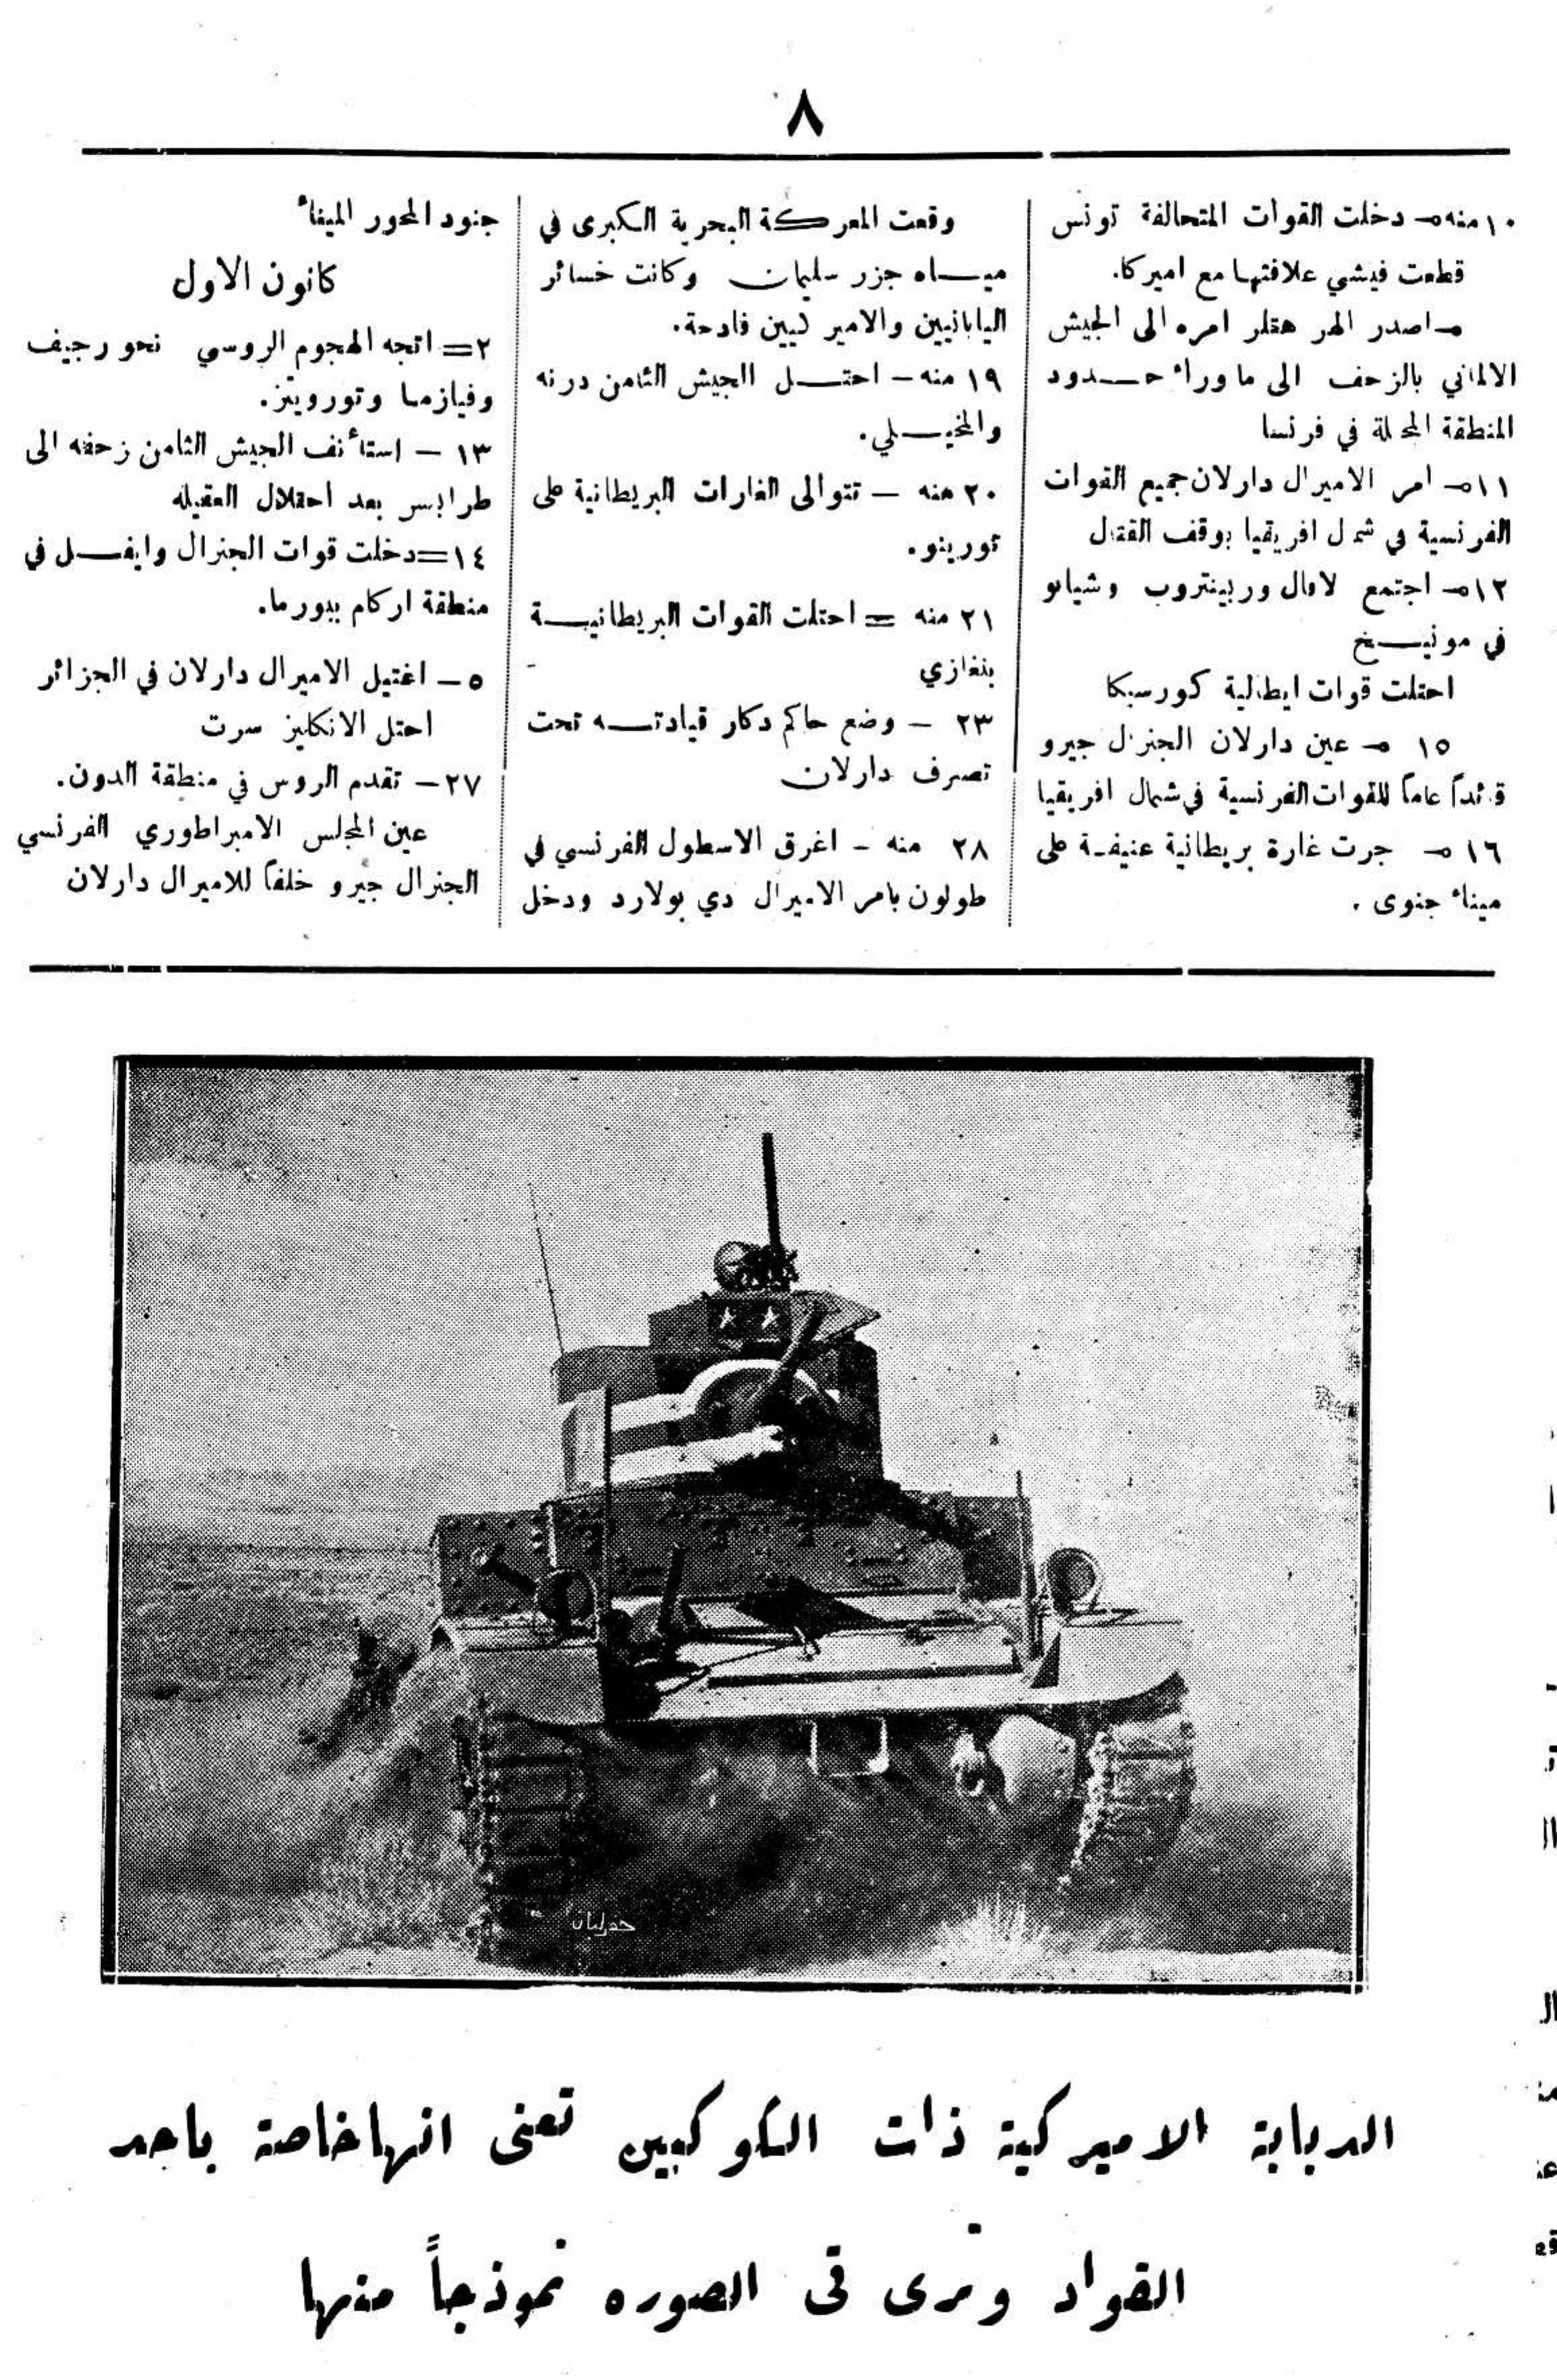 ٨
١٠ منه — دخلت القوات المتحالفة تونس
قطعت فيشي علاقتها مع اميركا.
— اصدر الهر هتلر امره الى الجيش
الالماني بالزحف الى ما وراء حدود
المنطقة المحتلة في فرنسا
١١ — امر الاميرال دارلان جميع القوات
الفرنسية في شمال افريقيا بوقف القتال
١٢ — اجتمع لافال وربينتروب وشيانو
في مونيخ
احتلت قوات ايطالية كورسيكا
١٥ — عين دارلان الجنرال جيرو
قائداً عاماً للقوات الفرنسية في شمال افريقيا
١٦ — جرت غارة بريطانية عنيفة على
ميناء جنوى .
وقعت المعركة البحرية الكبرى في
مياه جزر سليمان وكانت خسائر
اليابانيين والاميركيين فادحة.
١٩ منه — احتل الجيش الثامن درنه
والمخيلي.
٢٠ منه — تتوالى الغارات البريطانية على
تورينو.
٢١ منه = احتلت القوات البريطانية
بنغازي
٢٣ — وضع حاكم دكار قيادته تحت
تصرف دارلان
٢٨ منه - اغرق الاسطول الفرنسي في
طولون بامر الاميرال دي بولارد ودخل
جنود المحور الميناء
كانون الاول
٢= اتجه الهجوم الروسي نحو رجيف
وفيازما وتوروبتز.
١٣ — استأنف الجيش الثامن زحفه الى
طرابلس بعد احتلال العقيله
١٤= دخلت قوات الجنرال وايفل في
منطقة اركام ببورما.
٥ — اغتيل الاميرال دارلان في الجزائر
احتل الانكليز سرت
٢٧ — تقدم الروس في منطقة الدون.
عين المجلس الامبراطوري الفرنسي
الجنرال جيرو خلفاً للاميرال دارلان
الدبابة الاميركية ذات الكوكبين تعنى انها خاصة باحد
القواد وترى فى الصوره نموذجاً منها